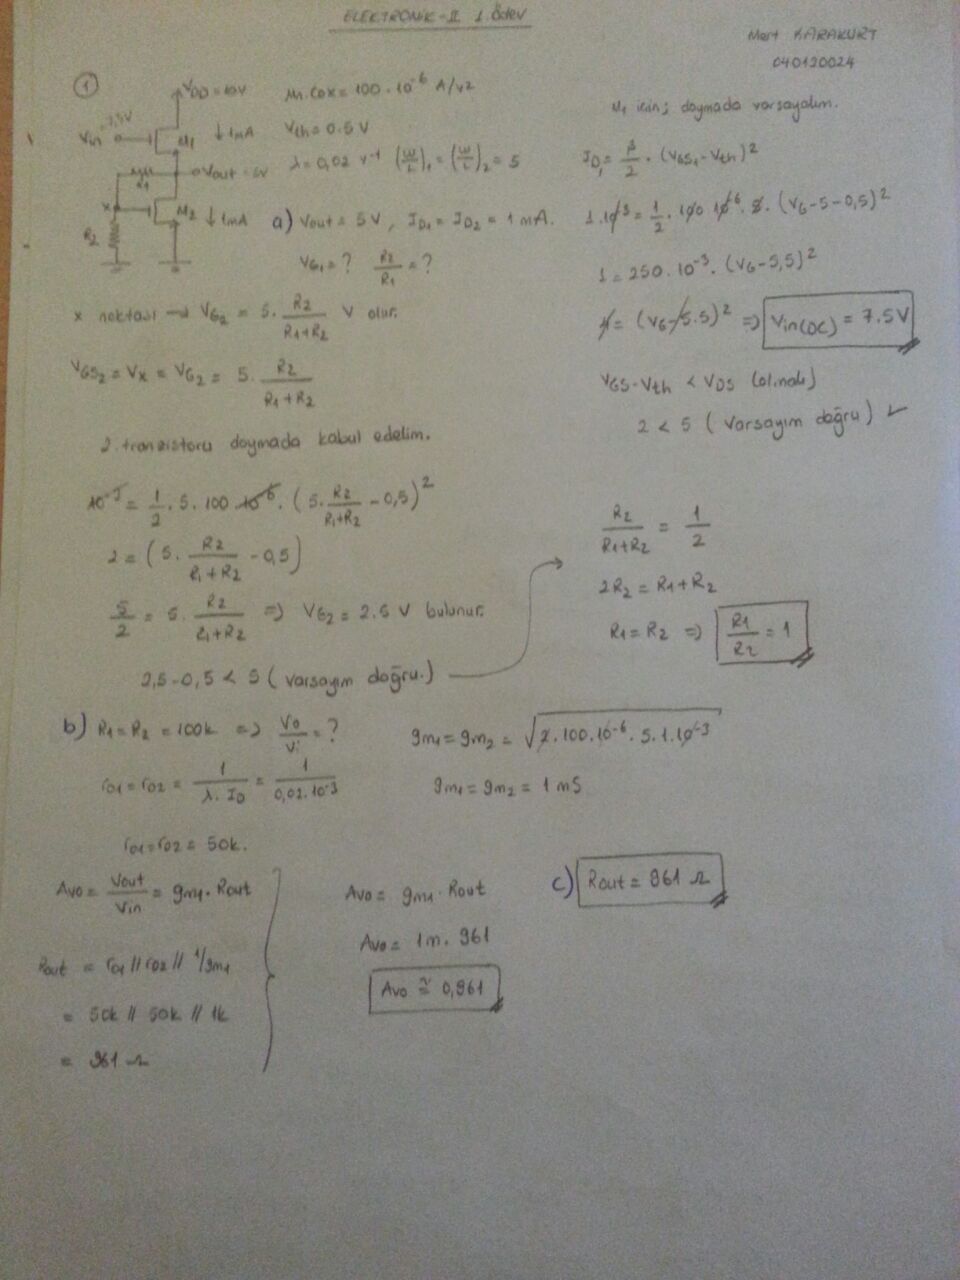 ELEKTRONİK-II 1.Ödev
Mert KARAKURT
040120024
①
VDD=10V
Vin=7,5V
↓1mA
M1
Vout=5V
R1
x
M2
↓1mA
R2
Mn.Cox=100.10^-6 A/V2
Vth=0.5V
λ=0,02 V^-1 (W/L)1=(W/L)2=5
a) Vout=5V, ID1=ID2=1mA.
VG1=? R2/R1=?
x noktası → VG2 = 5.R2/(R1+R2) V olur.
VGS2=Vx=VG2= 5.R2/(R1+R2)
2.tranzistoru doymada kabul edelim.
10^-3=1/2.5.100.10^-6.(5.R2/(R1+R2)-0,5)^2
2=(5.R2/(R1+R2)-0,5)
5/2=5.R2/(R1+R2) => VG2=2.5V bulunur.
2,5-0,5<5 (varsayım doğru.)
M1 için; doymada varsayalım.
ID1=β/2.(VGS1-Vth)^2
1.10^-3=1/2.100 10^-6.5.(VG-5-0,5)^2
1=250.10^-3.(VG-5,5)^2
4=(VG-5.5)^2 => Vin(DC)=7.5V
VGS-Vth<VDS (olmalı)
2<5 (Varsayım doğru) ✓
R2/(R1+R2)=1/2
2R2=R1+R2
R1=R2 => R1/R2=1
b) R1=R2=100k => Vo/Vi=?
ro1=ro2=1/(λ.ID)=1/(0,02.10^-3)
ro1=ro2=50k.
gm1=gm2=√(2.100.10^-6.5.1.10^-3)
gm1=gm2=1mS
Avo=Vout/Vin=gm1.Rout
Rout=ro1//ro2//1/gm1
=50k//50k//1k
=961Ω
Avo=gm1.Rout
Avo=1m.961
Avo≅0,961
c) Rout=961Ω